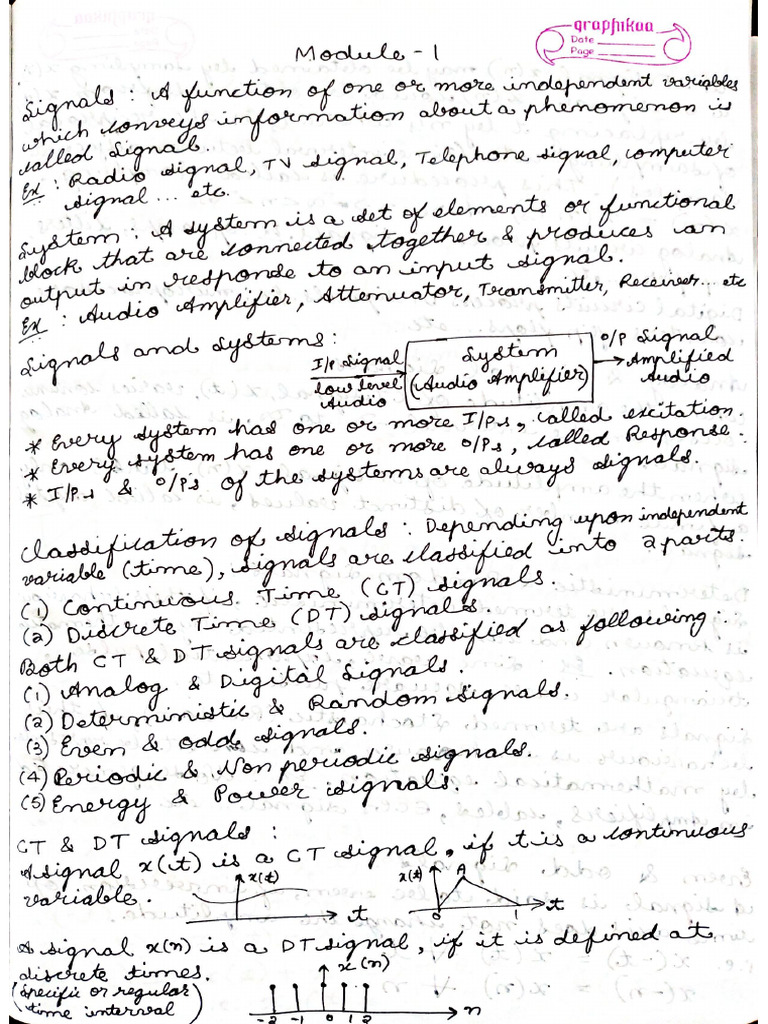 graphikaa
Date
Page
Module - 1
Signals : A function of one or more independent variables
which conveys information about a phenomenon is
called Signal.
Ex : Radio signal, TV signal, Telephone signal, computer
signal ... etc.
System : A system is a set of elements or functional
block that are connected together & produces an
output in response to an input signal.
Ex : Audio Amplifier, Attenuator, Transmitter, Receiver... etc
Signals and systems :
I/P signal
low level
Audio
System
(Audio Amplifier)
O/P signal
Amplified
Audio
* Every system has one or more I/Ps, called excitation.
* Every system has one or more O/Ps, called Response.
* I/Ps & O/P's of the systems are always signals.
Classification of signals : Depending upon independent
variable (time), signals are classified into 2 parts.
(1) Continuous Time (CT) signals.
(2) Discrete Time (DT) signals
Both CT & DT signals are classified as following :
(1) Analog & Digital Signals.
(2) Deterministic & Random signals.
(3) Even & odd signals.
(4) Periodic & Non periodic signals.
(5) Energy & Power signals.
CT & DT signals :
A signal x(t) is a CT signal, if t is a continuous
variable.
x(t)
t
x(t)
A
0
1
t
A signal x(n) is a DT signal, if it is defined at
discrete times.
(specific or regular
time interval)
x(n)
-2 -1 0 1 2
n